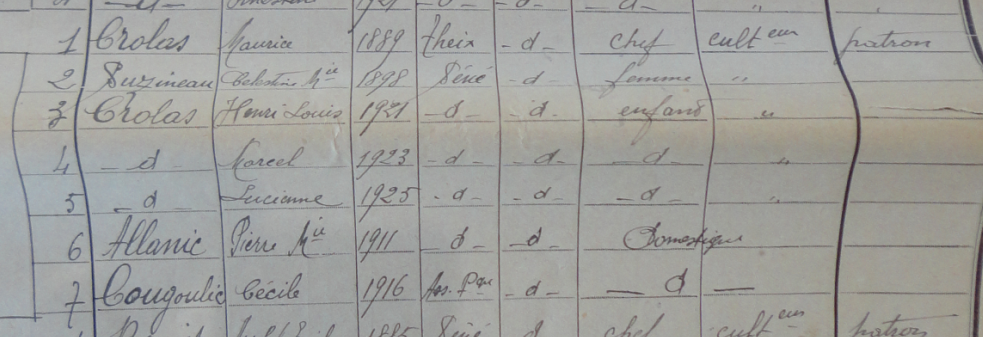 1 Crolas Maurice 1889 Theix - d - chef cult eur patron
2 Suzineau Celestine Mie 1898 Séné - d - femme "
3 Crolas Henri Louis 1921 - d - - d - enfant "
4 - d Marcel 1923 - d - - d - - d - "
5 - d Lucienne 1925 - d - - d - - d - "
6 Allanic Pierre Mie 1911 - d - - d - Domestique
7 Cougoulic Cécile 1916 - d - - d -
1885 Séné d chef cult eur patron